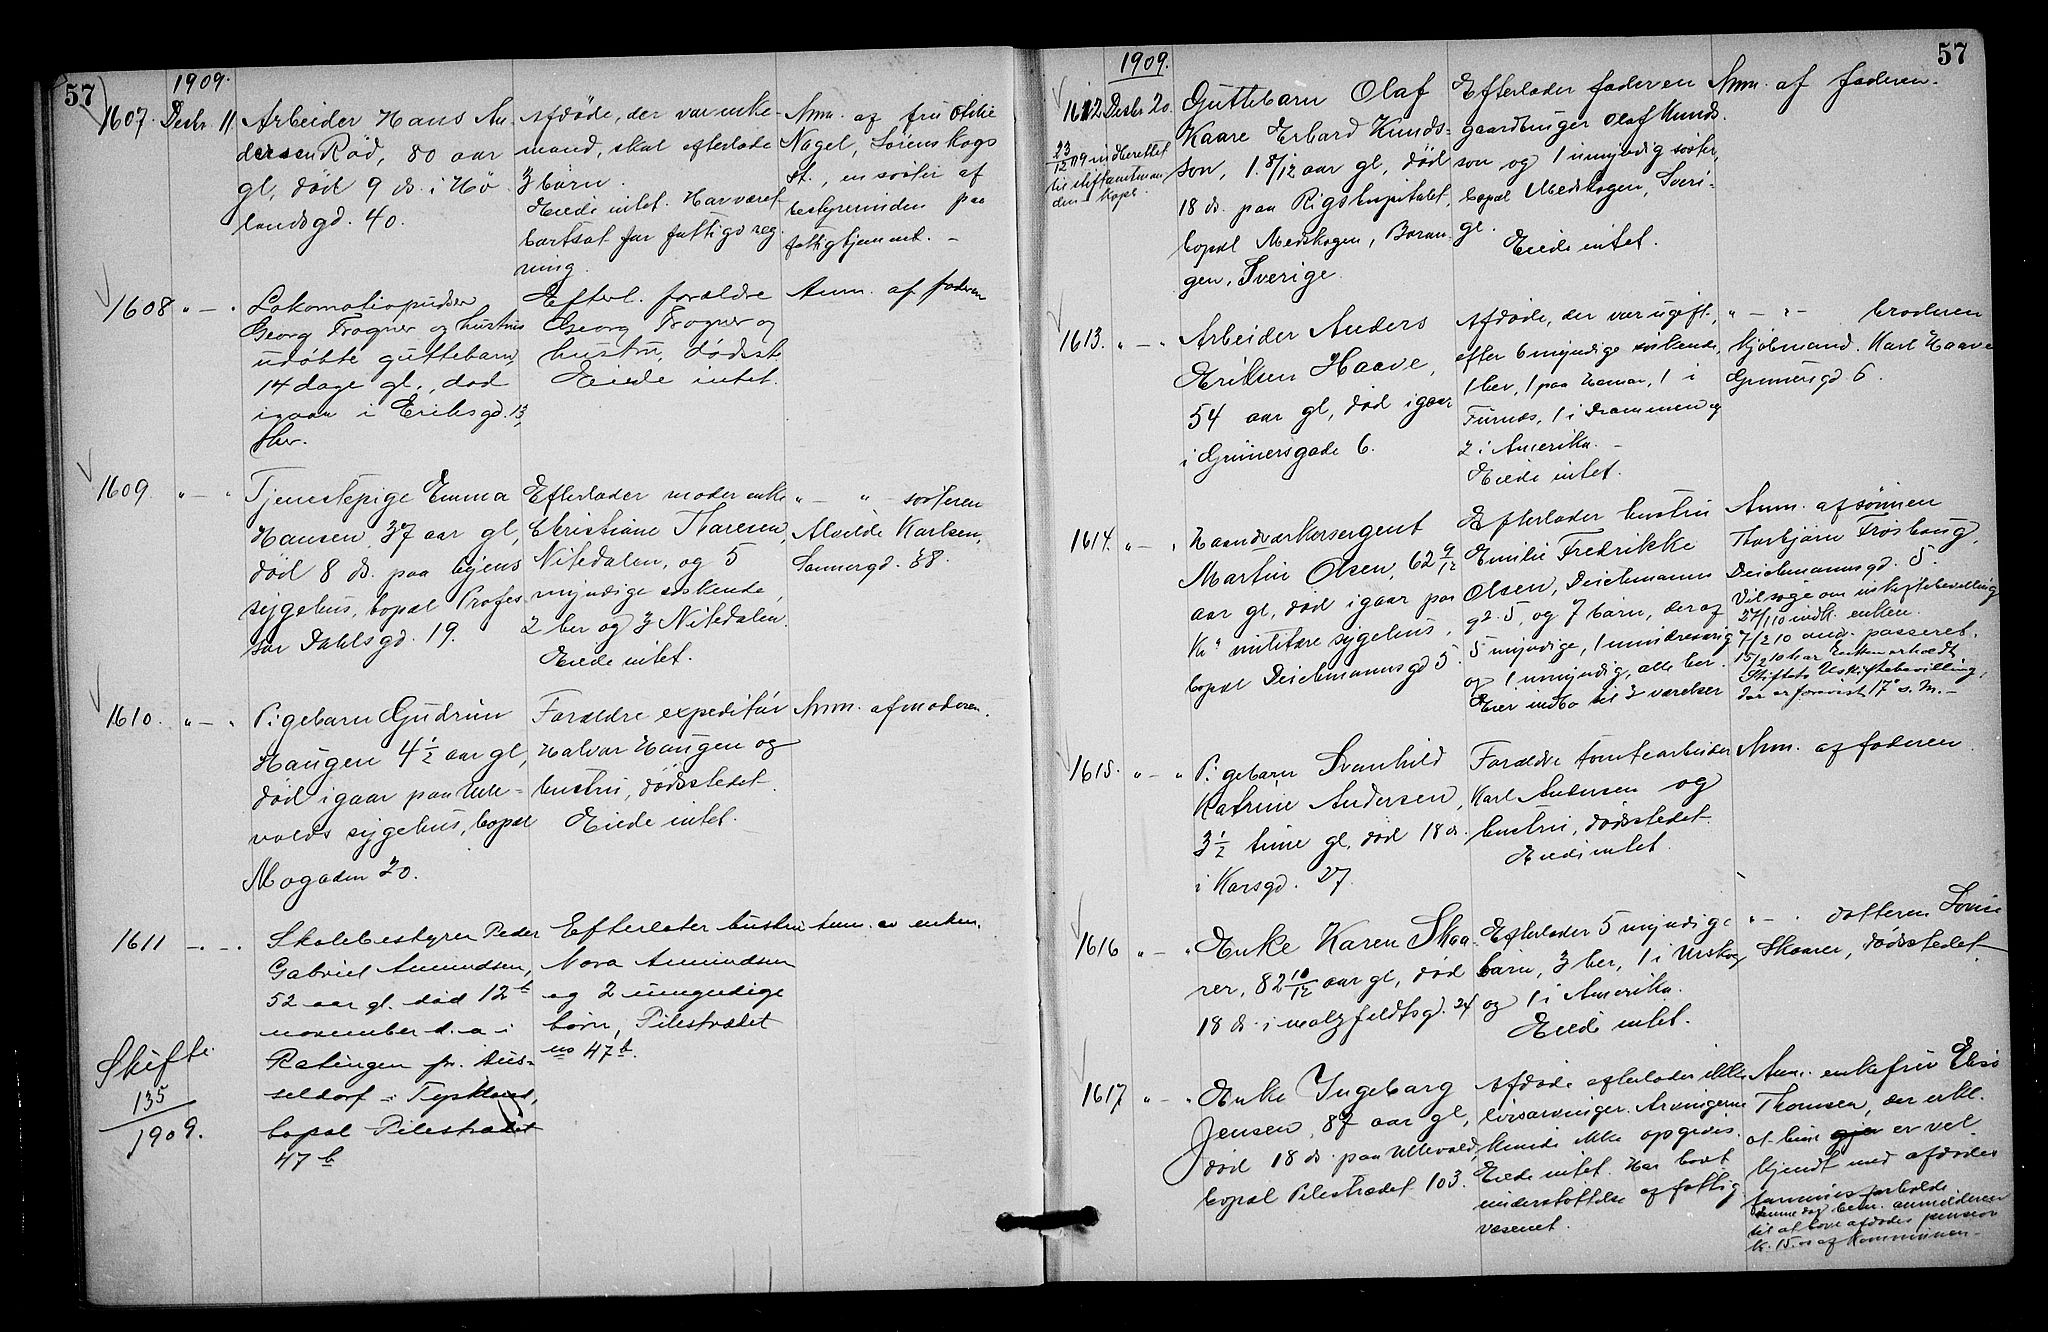 57
1909.
1607. Decbr. 11
Arbeider Hans An-
dersen Röd, 80 aar
gl, död 9 ds. i Hö-
landsgd. 40.
Afdöde, der var enke-
mand, skal efterlade
3 börn.
Eiede intet. Har været
bortsat for fattigvæs reg-
ning.
Anm. af fru Otilie
Nagel, Sörenskogs
st., en søster af
bestyrerinden paa
fattighjemmet. -
1608 " - "
Lokomotivpudser
Georg Frogner og hustrus
udöbte guttebarn,
14 dage gl., död
igaar i Eriksgd. 13,
her.
Efterl. forældre
Georg Frogner og
hustru, dödsst.
Eiede intet.
Anm. af faderen
1609. " - "
Tjenestepige Emma
Hansen, 37 aar gl,
död 8 ds. paa byens
sygehus, bopæl Profes-
sor Dahlsgd. 19.
Efterlader moder enke
Christiane Thoresen,
Nitedalen, og 5
myndige söskende,
2 her og 3 Nitedalen.
Eiede intet.
" - " søsteren
Alvilde Karlsen,
Sannergd. 38.
1610. " - "
Pigebarn Gudrun
Haugen 4 1/2 aar gl,
död igaar paa Ulle-
volds sygehus, bopæl
Mogaden 30.
Forældre expeditör
Halvor Haugen og
hustru, dödsstedet.
Eiede intet.
Anm. af moderen.
1611 " - "
Skolebestyrer Peder
Gabriel Amundsen,
52 aar gl. död 12te
november d. a. i
Ratingen pr. Düs-
seldorf i Tyskland,
bopæl Pilestrædet
47 b
Efterlater hustru
Nora Amundsen
og 2 umyndige
börn, Pilestrædet
no 47 b.
Anm. av enken.
Skifte
135
1909.
57
1909.
1612 Decbr. 20.
23/12 09 indberettet
til stiftamtman-
den i Kopt.
Guttebarn Olaf
Kaare Erhard Knuds-
son, 1 8/12 aar gl, död
18 ds. paa Rigshospitalet,
bopæl Medskogen, Boran-
gen, Sverige.
Efterlader faderen
gaardbruger Olaf Knuds-
son og 1 umyndig søster,
bopæl Medskogen, Sveri-
ge.
Eiede intet.
Anm. af faderen.
1613. " - "
Arbeider Anders
Eriksen Haave,
54 aar gl, död igaar
i Grünersgade 6.
Afdöde, der var ugift,
efter 6 myndige søskende,
1 her, 1 paa Hamar, 1 i
Furnæs, 1 i Drammen og
2 i Amerika. -
Eiede intet.
" - " broderen
kjöbmand. Karl Haave
Grünersgd 6.
1614. " - "
Haandværkersergent
Martin Olsen, 62 9/12
aar gl, död igaar paa
Kr.a militære sygehus,
bopæl Deichmannsgd 5.
Efterlader hustru
Emilie Fredrikke
Olsen, Deichmanns
gd. 5, og 7 börn, deraf
5 myndige, 1 mindreaarig
og 1 umyndig, alle her.
Eier indbo til 3 værelser
Anm. af sönnen
Thorbjörn Fröshaug,
Deichmannsgd. 5.
Vil söge om uskiftebevilling
27/1 10 indk. enken.
7/2 10 and. passeret.
15/2 10 har Enken erholdt
Skiftets Uskiftebevilling,
der er forevist 17de s. M. -
1615. " - "
Pigebarn Svanhild
Katrine Andersen,
3 1/2 time gl, död 18 ds.
i Korsgd. 27.
Forældre tomtearbeider
Karl Andersen og
hustru, dödsstedet.
Eiede intet.
Anm. af faderen.
1616 " - "
Enke Karen Skaa-
rer, 82 10/12 aar gl, död
18 ds. i Maltzfeldtsgd. 24
Efterlader 5 myndige
börn, 3 her, 1 i Urskog
og 1 i Amerika.
Eiede intet.
" - " datteren Lovise
Skaarer, dödsstedet.
1617 " - "
Enke Ingeborg
Jensen, 87 aar gl,
död 18 ds. paa Ullevold,
bopæl Pilestrædet 103.
Afdöde efterlader ikke
livsarvinger. Arvingerne
kunde ikke opgives.
Eiede intet. Har havt
understöttelse af fattig
væsenet.
Anm. enkefru Elise
Thomsen, der erkl.
at hun er vel
kjendt med afdödes
familieforholde.
Denne dag bem. anmelderen
til at hæve afdödes pension
kr. 15.00 af Kommunen. -